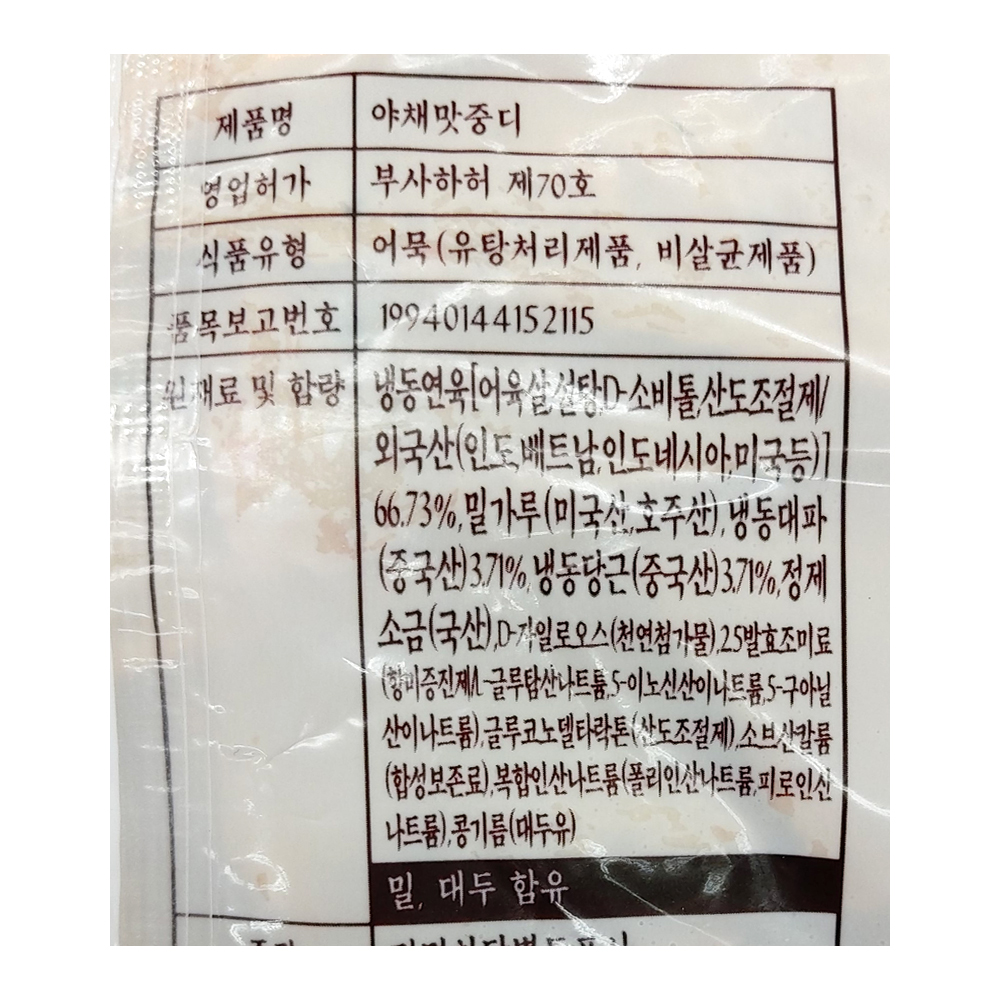 제품명 야채맛중디
영업허가 부사하허 제70호
식품유형 어묵(유탕처리제품, 비살균제품)
품목보고번호 19940144152115
원재료 및 함량 냉동연육[어육살,설탕,D-소비톨,산도조절제/
외국산(인도,베트남,인도네시아,미국등)]
66.73%,밀가루(미국산,호주산),냉동대파
(중국산)3.71%,냉동당근(중국산)3.71%,정제
소금(국산),D-자일로오스(천연첨가물),25발효조미료
(향미증진제/L-글루탐산나트륨,5-이노신산이나트륨,5-구아닐
산이나트륨),글루코노델타락톤(산도조절제),소브산칼륨
(합성보존료),복합인산나트륨(폴리인산나트륨,피로인산
나트륨),콩기름(대두유)
밀, 대두 함유